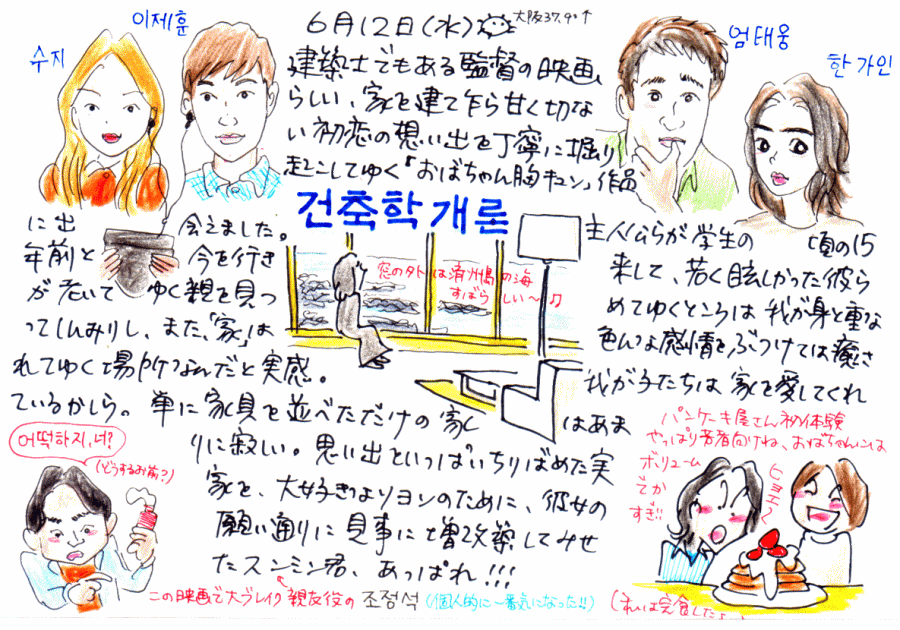 수지
이제훈
6月12日(水) 大阪37.9°↑
엄태웅
한가인
建築士でもある監督の映画
らしい、家を建て乍ら甘く切な
い初恋の想い出を丁寧に掘り
起こしてゆく「おばちゃん胸キュン」作品
건축학개론
に出会えました。主人公らが学生の頃の15
年前と今を行き来して、若く眩しかった彼ら
が老いてゆく親を見つめてゆくところは我が身と重な
ってしんみりし、また、「家」は色んな感情をぶつけては癒さ
れてゆく場所なんだと実感。我が子たちは家を愛してくれ
ているかしら。単に家具を並べただけの家じゃ
はあま
りに寂しい。思い出といっぱいちりばめた実
家を、大好きなヨンのために、彼女の
願い通りに見事に増改築してみせ
たスンミン君、あっぱれ!!!
窓の外は済州島の海
すばらしい〜♫
어떡하지,너?
(どうするお前?)
パンケーキ屋さん初体験
やっぱり若者向けね、おばちゃんには
ボリューム
でか
すぎ!!
ヒョエ〜
この映画で大ブレイク 親友役の 조정석 (個人的に一番気になった!!)
(私は完食したよ〜)